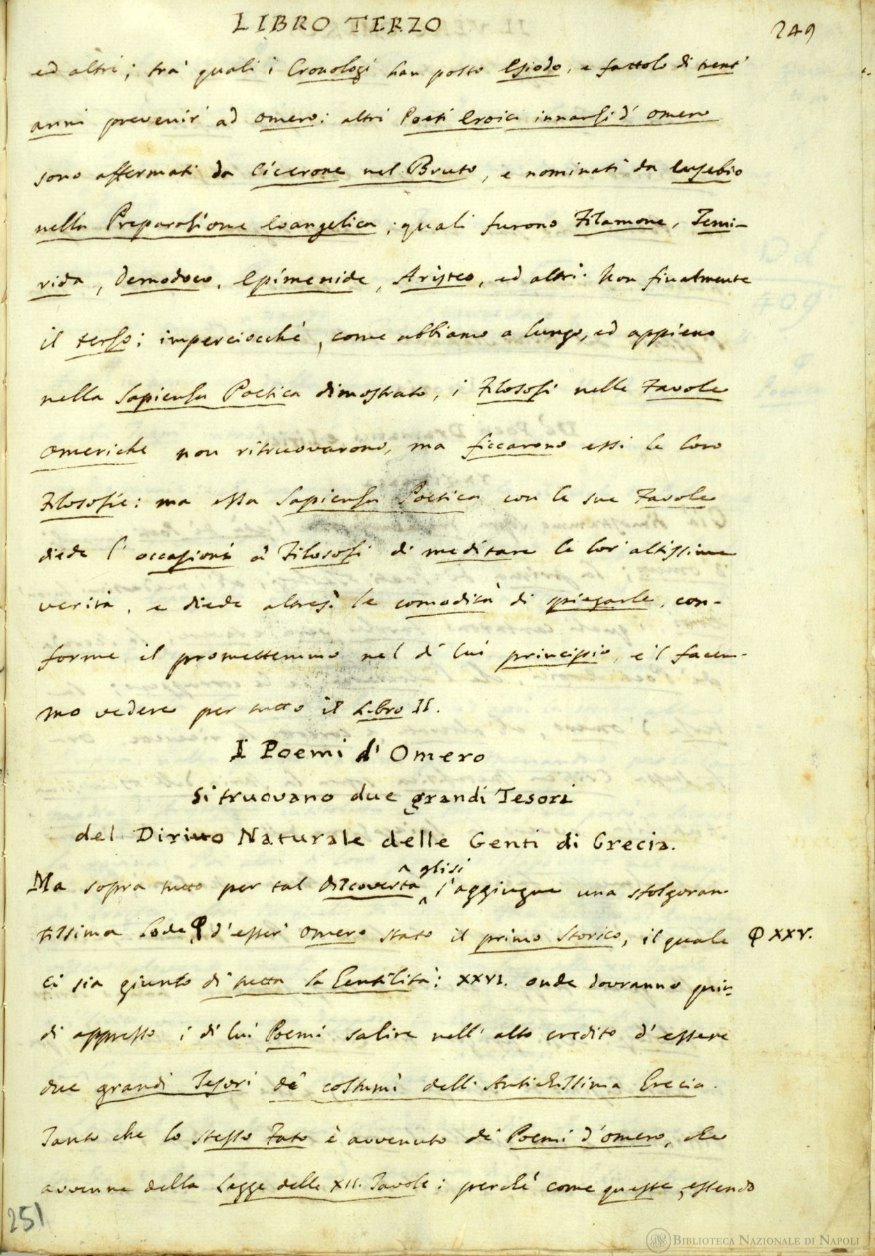 LIBRO TERZO
249
ed altri; tra' quali i Cronologi han posto Esiodo, e fattolo di trent'
anni prevenir' ad Omero: altri Poeti Eroici innanzi d' Omero
sono affermati da Cicerone nel Bruto, e nominati da Eusebio
nella Preparazione Evangelica; quali furono Filamone, Temi-
rida, Demodoco, Epimenide, Aristeo, ed altri. Non finalmente
il terzo; imperciocchè, come abbiamo a lungo, ed appieno
nella Sapienza Poetica dimostrato, i Filosofi nelle Favole
Omeriche non ritruovarono, ma ficcarono essi le loro
Filosofie: ma essa Sapienza Poetica con le sue Favole
diede l' occasioni a' Filosofi di meditare le lor' altissime
verità, e diede altresì le comodità di spiegarle, con-
forme il promettemmo nel di lui principio, e'l facem-
mo vedere per tutto il Libro II.
I Poemi d' Omero
si truovano due grandi Tesori
del Diritto Naturale delle Genti di Grecia.
Ma sopra tutto per tal Discoverta glisi s'aggiugne una sfolgoran-
tissima lode d'esser' Omero stato il primo Storico, il quale
XXV.
ci sia giunto di tutta la Gentilità: XXVI. onde dovranno quin-
di appresso i di lui Poemi salire nell' alto credito d' essere
due grandi Tesori de' costumi dell' Antichissima Grecia.
Tanto che lo stesso Fato è avvenuto de' Poemi d'Omero, che
avvenne della Legge delle XII. Tavole: perchè come queste, essendo
251
BIBLIOTECA NAZIONALE DI NAPOLI